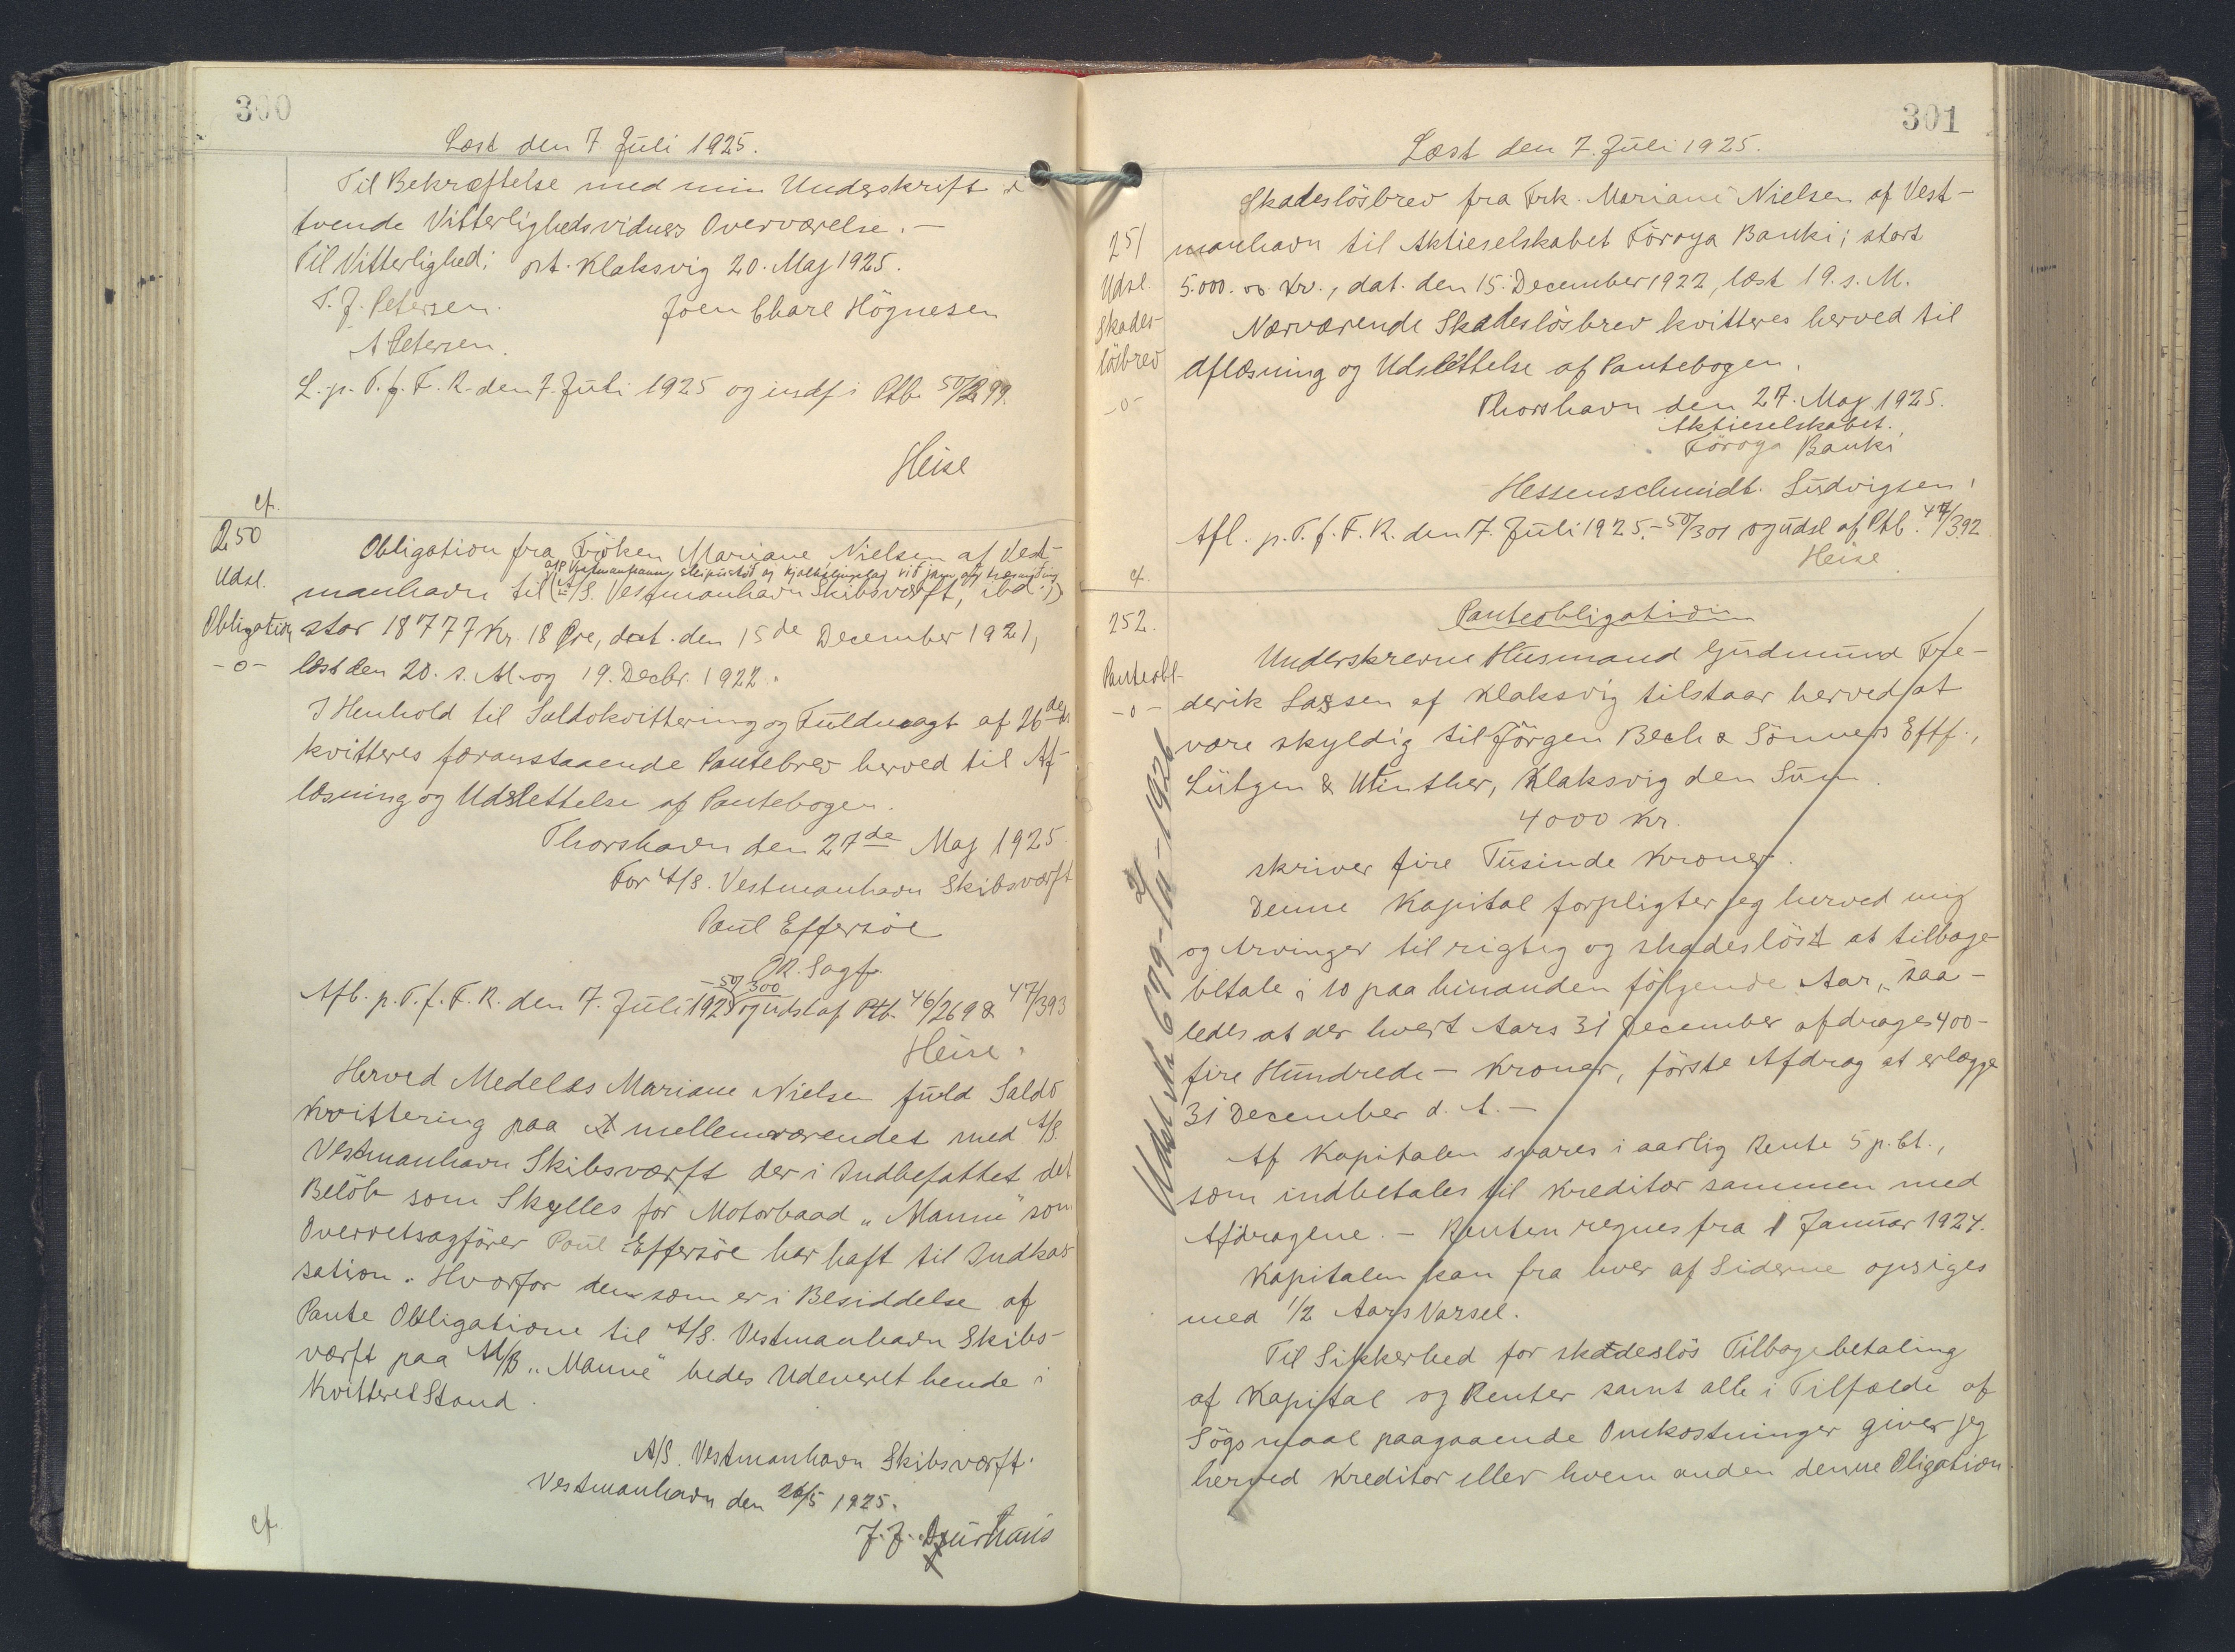 300
Læst den 7 Juli 1925.
Til Bekræftelse med min Underskrift i
tvende Vitterlighedsvidners Overværelse. -
Til Vitterlighed: pt. Klaksvig 20. Maj 1925.
T. J. Petersen. Joen Charl Högnesen
A Petersen.
L. p. T. f. F. R. den 7. Juli 1925 og indf i Ptb. 50/299.
Heise
cf.
250
Udsl.
Obligation
-o-
Obligation fra Fröken Mariane Nielsen af Vest-
manhavn til (A/S. Vestmanhavn Skibsværft, ibd.;)
stor 18777 Kr. 18 Øre, dat. den 15de December 1921,
læst den 20. s. M. og 19. Decbr. 1922.
I Henhold til Saldokvittering og Fuldmagt af 26de ds
kvitteres foranstaaende Pantebrev herved til Af-
læsning og Udslettelse af Pantebogen.
Thorshavn den 27de Maj 1925
For A/S. Vestmanhavn Skibsværft
Poul Effersöe
OR. Sagf.
- 50/300
Afl. p. T. f. F. R. den 7. Juli 1925 og udsl af Ptb. 46/269 & 47/393
Heise.
Herved Medeles Mariane Nielsen fuld Saldo
Kvittering paa alt mellemværendet med A/S.
Vestmanhavn Skibsværft der i Indbefattet det
Belöb som Skylles for Motorbaad "Manne" som
Overretsagförer Poul Effersöe har haft til Indkas
sation. Hvorfor den som er i Besiddelse af
Pante Obligatione til A/S. Vestmanhavn Skibs-
værft paa M/B "Manne" bedes Udeveret hende i
Kvitteret Stand.
A/S. Vestmanhavn Skibsværft.
Vestmanhavn den 26/5 1925.
J. J. Djurhuus
cf.
301
Læst den 7. Juli 1925.
251
Udsl.
Skades-
lösbrev
-o-
Skadeslösbrev fra Frk. Mariane Nielsen af Vest-
manhavn til Aktieselskabet Föroya Banki; stort
5.000.00 Kr., dat. den 15. December 1922, læst 19. s. M.
Nærværende Skadeslösbrev kvitteres herved til
Aflæsning og Udslettelse af Pantebogen.
Thorshavn den 27. Maj 1925.
Aktieselskabet.
Föroya Banki
Hessenschmidt. Ludvigsen.
Afl. p. T. f. F. R. den 7. Juli 1925. - 50/301 og udsl af Ptb. 47/392
Heise
cf.
252.
Panteobl-
-o-
Panteobligation
Underskrevne Husmand Gudmund Fre-
derik Lassen af Klaksvig tilstaar herved at
være skyldig til Jörgen Bech & Sönners Eftf.,
Lütgen & Winther, Klaksvig den Sum.
4000 Kr.
skriver fire Tusinde Kroner.
Denne Kapital forpligter jeg herved mig
og Arvinger til rigtig og skadeslöst at tilbage
betale i 10 paa hinanden fölgende Aar, saa-
ledes at der hvert Aars 31 December afdrages 400-
fire Hundrede - Kroner, förste Afdrag at erlægge
31 December d. A. -
Af Kapitalen svares i aarlig Rente 5 p. Ct.,
som indbetales til Kreditor sammen med
Afdragene. - Renten regnes fra 1 Januar 1924.
Kapitalen kan fra hver af Siderne opsiges
med 1/2 Aars Varsel.
Til Sikkerhed for skadeslös Tilbagebetaling
af Kapital og Renter samt alle i Tilfælde af
Sögsmaal paagaaende Omkostninger giver jeg
herved Kreditor eller hvem anden denne Oligation